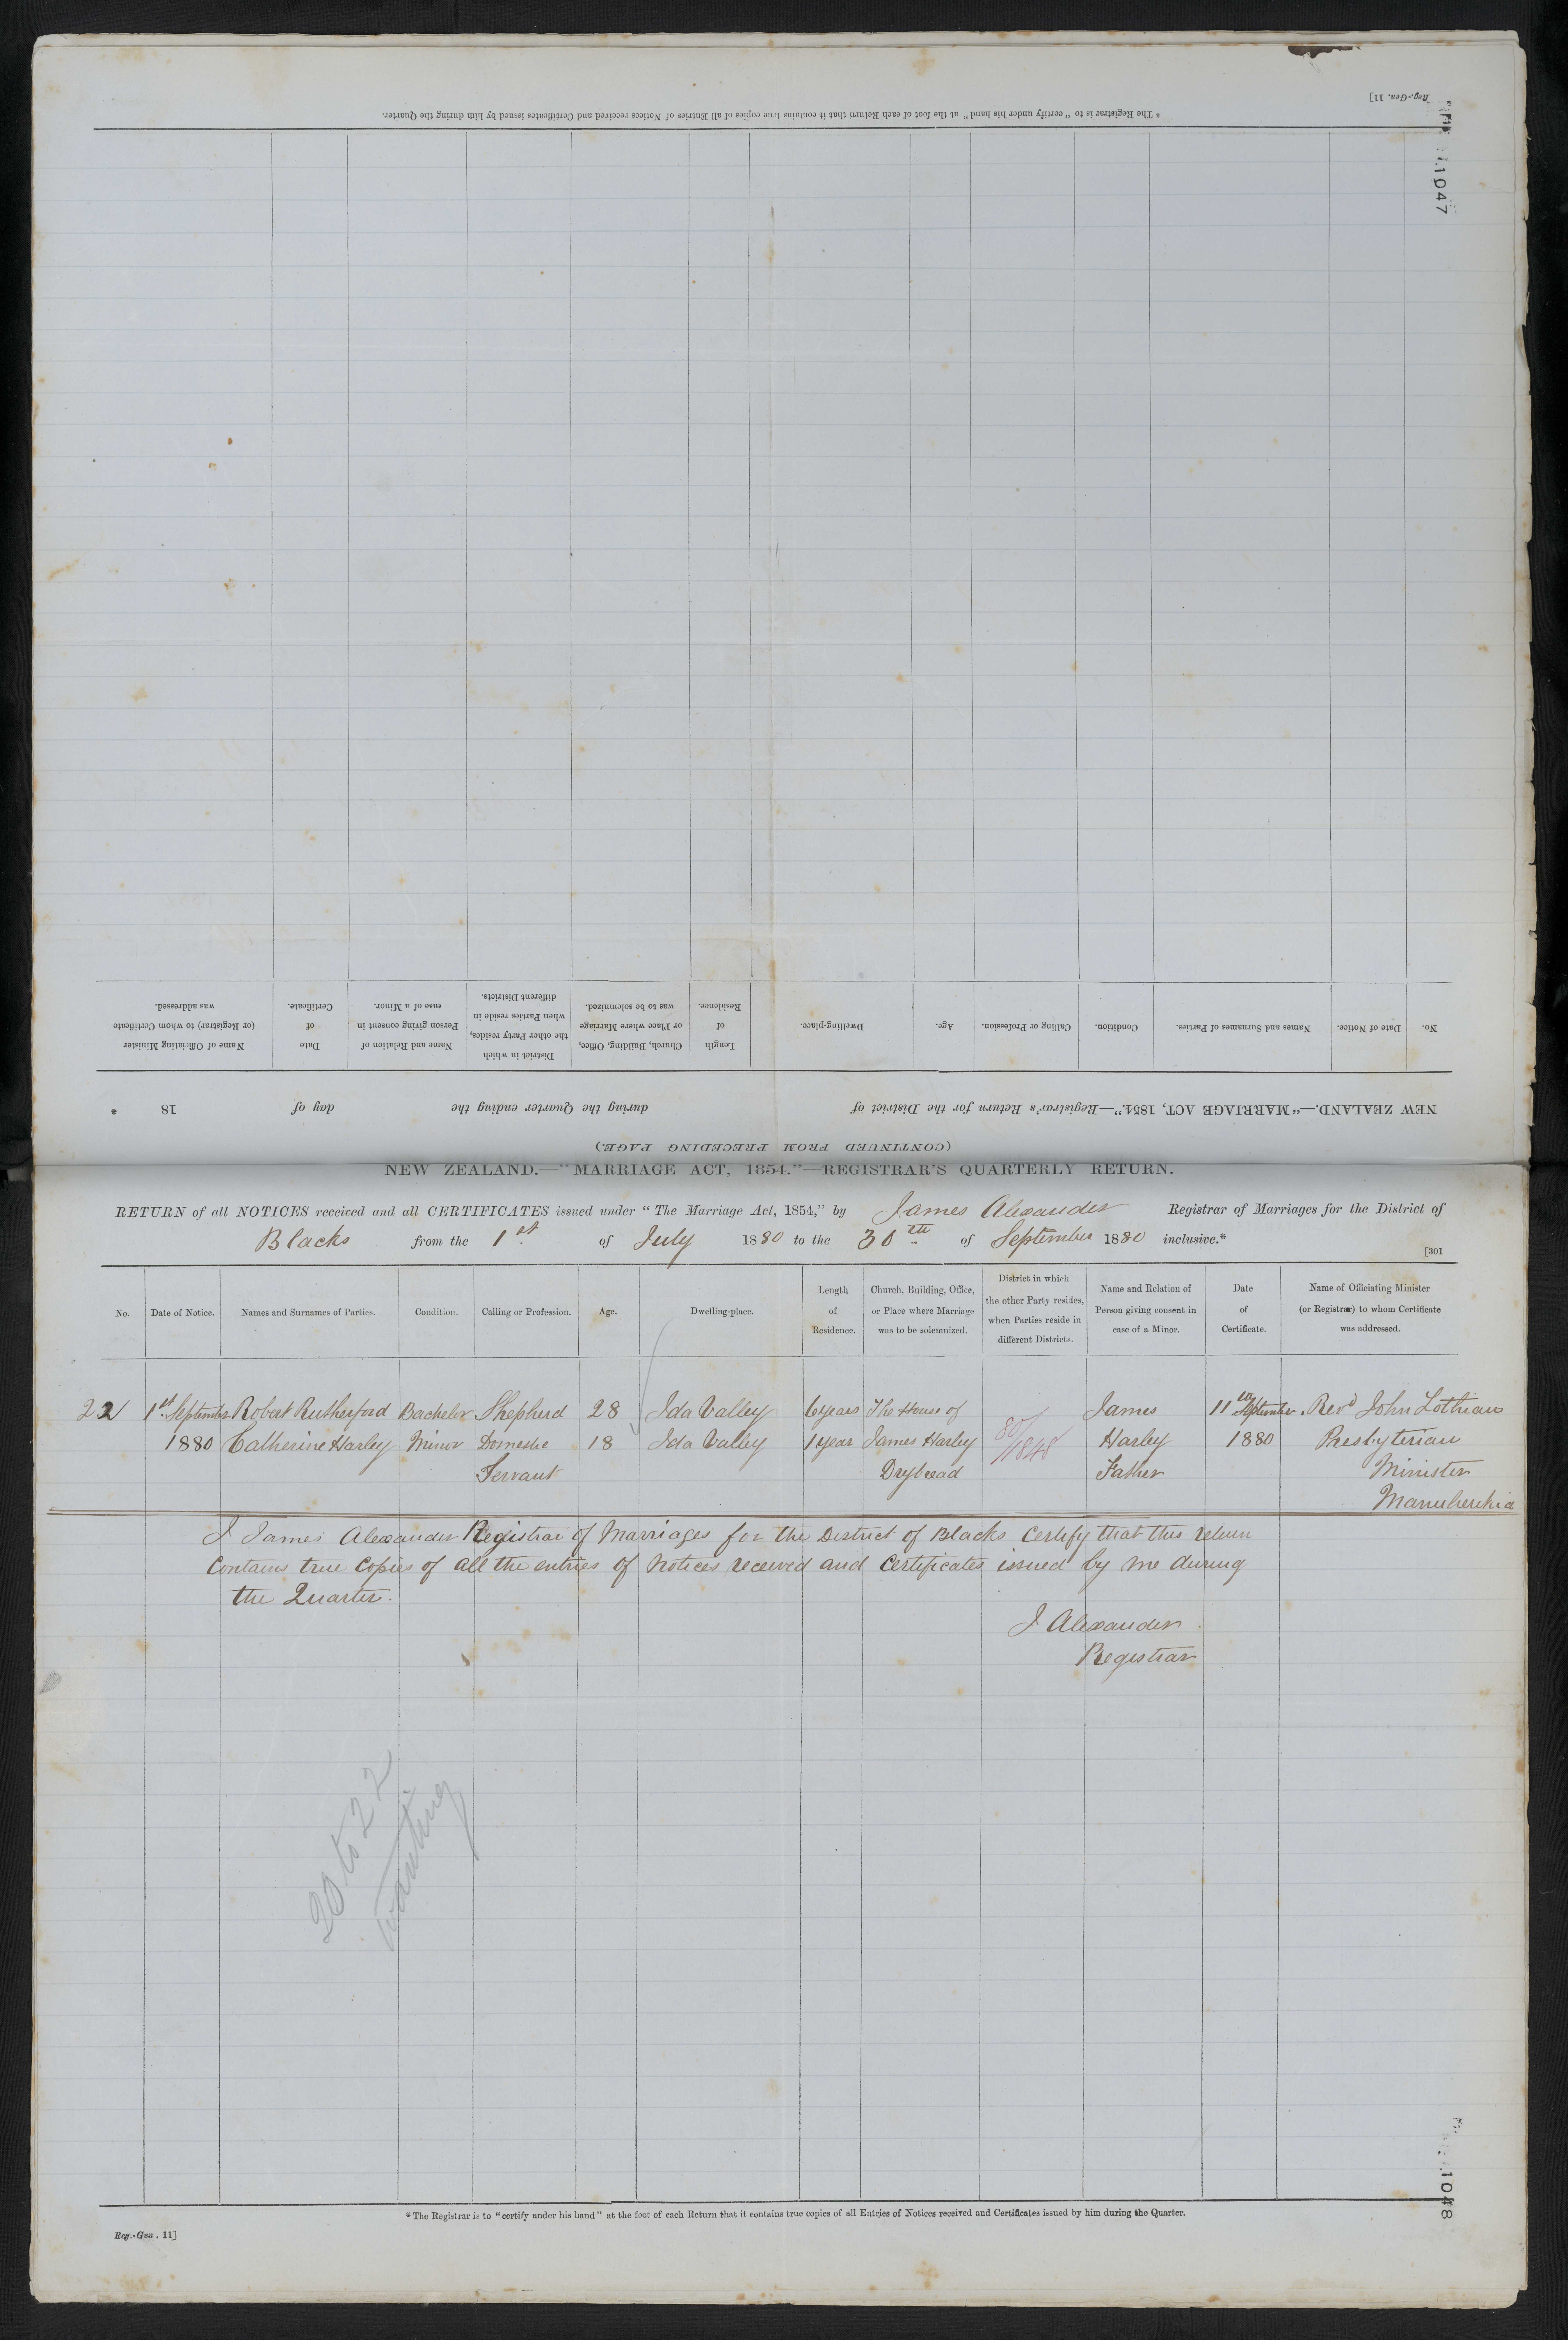 Reg.-Gen. 11]
* The Registrar is to "certify under his hand" at the foot of each Return that it contains true copies of all Entries of Notices received and Certificates issued by him during the Quarter.
1047
(CONTINUED FROM PRECEDING PAGE.)
NEW ZEALAND.—"MARRIAGE ACT, 1854."—Registrar's Return for the District of during the Quarter ending the day of 18 .
No.
Date of Notice.
Names and Surnames of Parties.
Condition.
Calling or Profession.
Age.
Dwelling-place.
Length
of
Residence.
Church, Building, Office,
or Place where Marriage
was to be solemnized.
District in which
the other Party resides,
when Parties reside in
different Districts.
Name and Relation of
Person giving consent in
case of a Minor.
Date
of
Certificate.
Name of Officiating Minister
(or Registrar) to whom Certificate
was addressed.
NEW ZEALAND.—"MARRIAGE ACT, 1854."—REGISTRAR'S QUARTERLY RETURN.
RETURN of all NOTICES received and all CERTIFICATES issued under "The Marriage Act, 1854," by James Alexander Registrar of Marriages for the District of
Blacks from the 1st of July 1880 to the 30th of September 1880 inclusive.*
[301
No.
Date of Notice.
Names and Surnames of Parties.
Condition.
Calling or Profession.
Age.
Dwelling-place.
Length
of
Residence.
Church, Building, Office,
or Place where Marriage
was to be solemnized.
District in which
the other Party resides,
when Parties reside in
different Districts.
Name and Relation of
Person giving consent in
case of a Minor.
Date
of
Certificate.
Name of Officiating Minister
(or Registrar) to whom Certificate
was addressed.
22 1st September Robert Rutherford Bachelor Shepherd 28 Ida Valley 6 years The House of James 11th September Revd John Lothian
1880 Catherine Harley Minor Domestic 18 Ida Valley 1 year James Harley 80/1848 Harley 1880 Presbyterian
Servant Drybread Father Minister
Manuherikia
I James Alexander Registrar of Marriages for the District of Blacks certify that this return
contains true copies of all the entries of notices received and certificates issued by me during
the Quarter.
J Alexander
Registrar
20 to 22
wanting
1048
* The Registrar is to "certify under his hand" at the foot of each Return that it contains true copies of all Entries of Notices received and Certificates issued by him during the Quarter.
Reg.-Gen. 11]